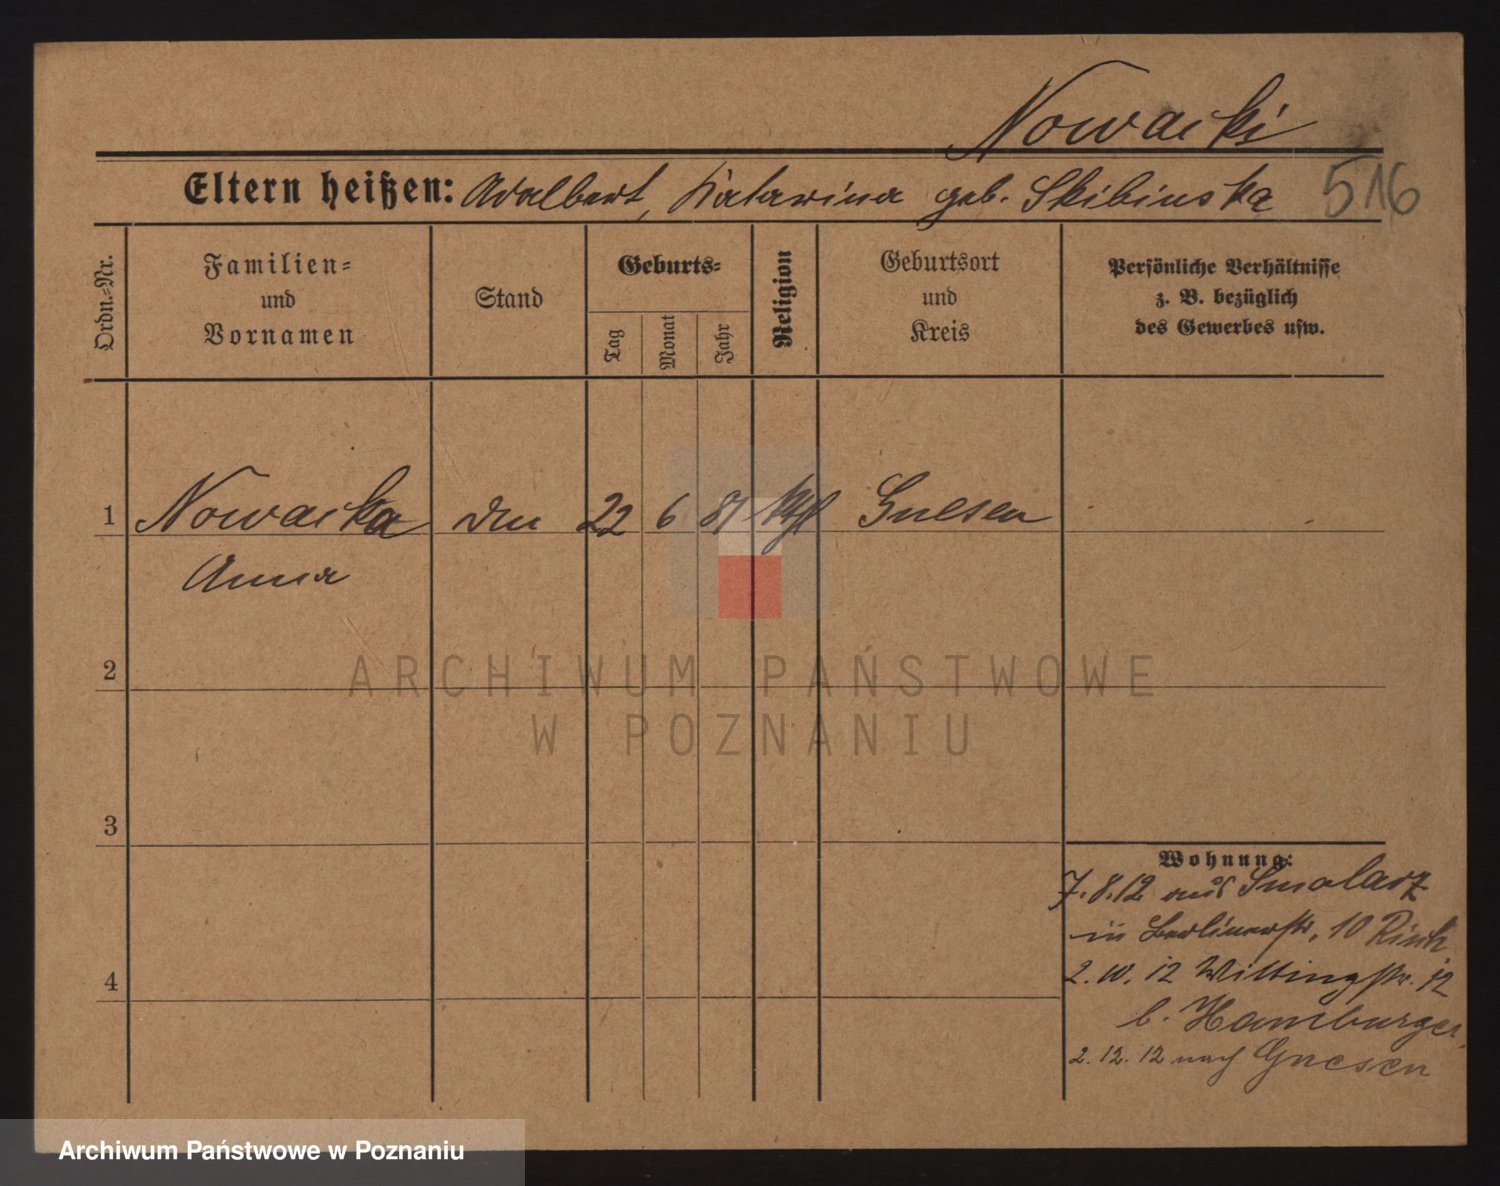 Nowacki
Eltern heißen: Adalbert, Katarina geb. Skibinska
516
Ordn.-Nr.
Familien- und Vornamen
Stand
Geburts-
Tag
Monat
Jahr
Religion
Geburtsort und Kreis
Persönliche Verhältnisse z. B. bezüglich des Gewerbes usw.
1 Nowacka 22 6 Gnesen
Anna
2
3
4
Wohnung:
7.8.12 aus Smolarz
in Berlinerstr. 10
2.10.12 Wittingstr. 12
b. Hamburger
2.12.12 nach Gnesen
ARCHIWUM PAŃSTWOWE
W POZNANIU
Archiwum Państwowe w Poznaniu